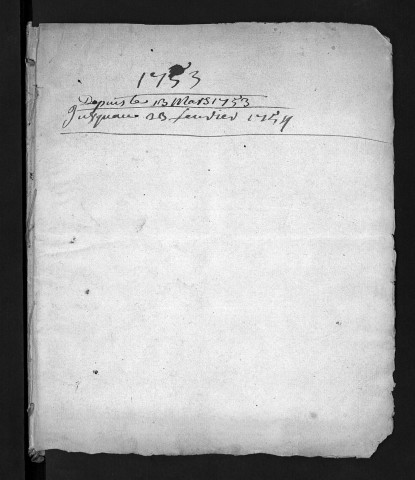 1753
Depuis le 13 Mars 1753
Jusquau 23 fevrier 1754